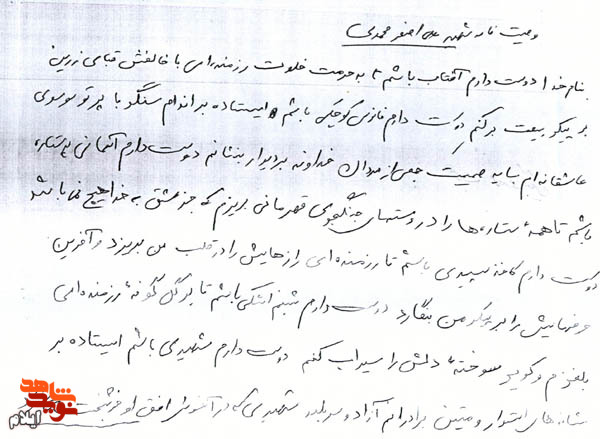 وصیت نامه شهید علی اصغر محمدی
بنام خدا دوست دارم آفتاب باشم تا به حرمت خلوت رزمنده‌ای با خالقش قبایی زرین
بر پیکر بیعت بر کنم دوست دارم فانوسی کوچک باشم ایستاده بر اندام سنگر با پرتو سوسوی
عاشقانه‌ام سایه جمعی از خداوند بر دیوار بنشانم دوست دارم آسمانی پرستاره
باشم تا همه ستاره‌ها را در دستهای جنگجوی قهرمانی بریزم که جز عشق به خدا هیچ نمی‌باشد
دوست دارم کاغذ سپیدی باشم تا رزمنده‌ای رازهایش را در قلب من بریزد و آخرین
حرفهایش را بر من بنگارد دوست دارم شبنم اشکی باشم تا بر گل گونه رزمنده‌ای
بلغزم و کویر سوخته دلش را سیراب کنم دوست دارم شهیدی باشم ایستاده بر
شانه‌های استوار و متین برادرانم آزاد و سربلند شهیدی که در آغوش افق او
نوید شاهد
ایلام